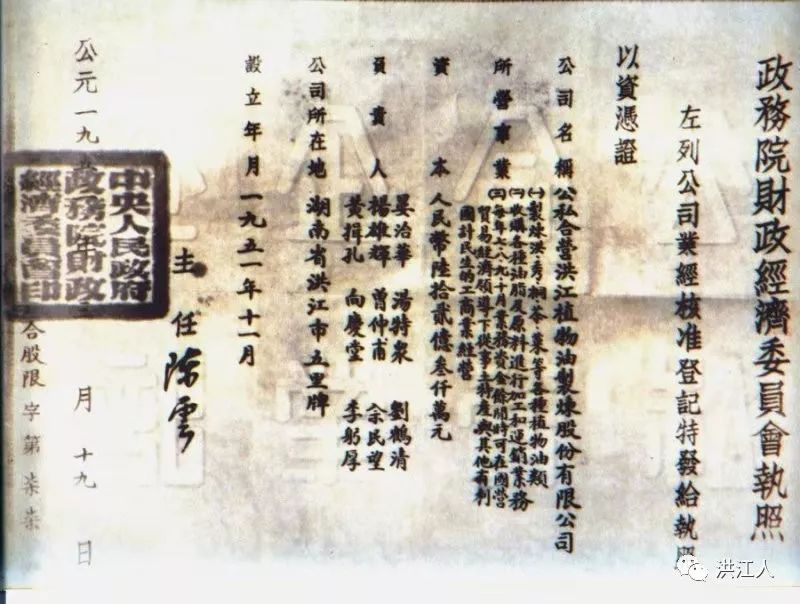 政務院財政經濟委員會執照
左列公司業經核准登記特發給執照
以資憑證
公司名稱 公私合營洪江植物油製煉股份有限公司
所營事業 ㈠製煉洪、秀、桐、茶、菜等各種植物油類
㈡收購各種油脂及原料進行加工和運銷業務
㈢每年七八九十月業務資金餘閒時可在國營
貿易經濟領導下從事土特產與其他有利
國計民生的工商業經營
資本 人民幣陸拾貳億叁仟萬元
負責人 晏治華 湯特泉 劉鶴清
楊雄輝 曾仲甫 余民望
黃揖孔 向慶堂 李躬厚
公司所在地 湖南省洪江市五里牌
設立年月 一九五一年十一月
主任 陳雲
公元一九 月十九日
中央人民政府
政務院財政
經濟委員會印
合股限字第柒柒
洪江人